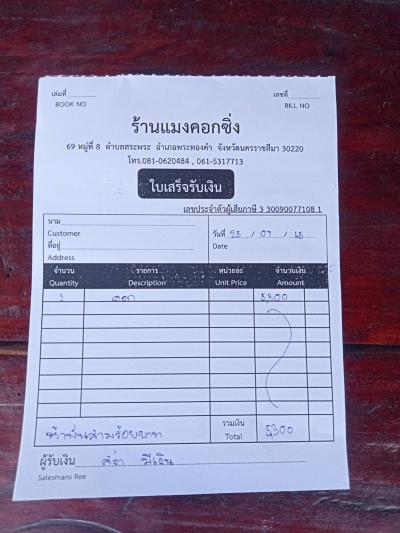 เล่มที่ เลขที่
BOOK NO BILL NO
ร้านแมงคอกซิ่ง
69 หมู่ที่ 8 ตำบลสระพระ อำเภอพระทองคำ จังหวัดนครราชสีมา 30220
โทร.081-0620484 , 061-5317713
ใบเสร็จรับเงิน
เลขประจำตัวผู้เสียภาษี 3 30090077108 1
นาม
Customer
วันที่ 25 / 07 / 65
ที่อยู่ Date
Address
จำนวน รายการ หน่วยละ จำนวนเงิน
Quantity Description Unit Price Amount
1 5,300
ห้าพันสามร้อยบาท รวมเงิน 5,300
Total
ผู้รับเงิน
Salesmans Ree